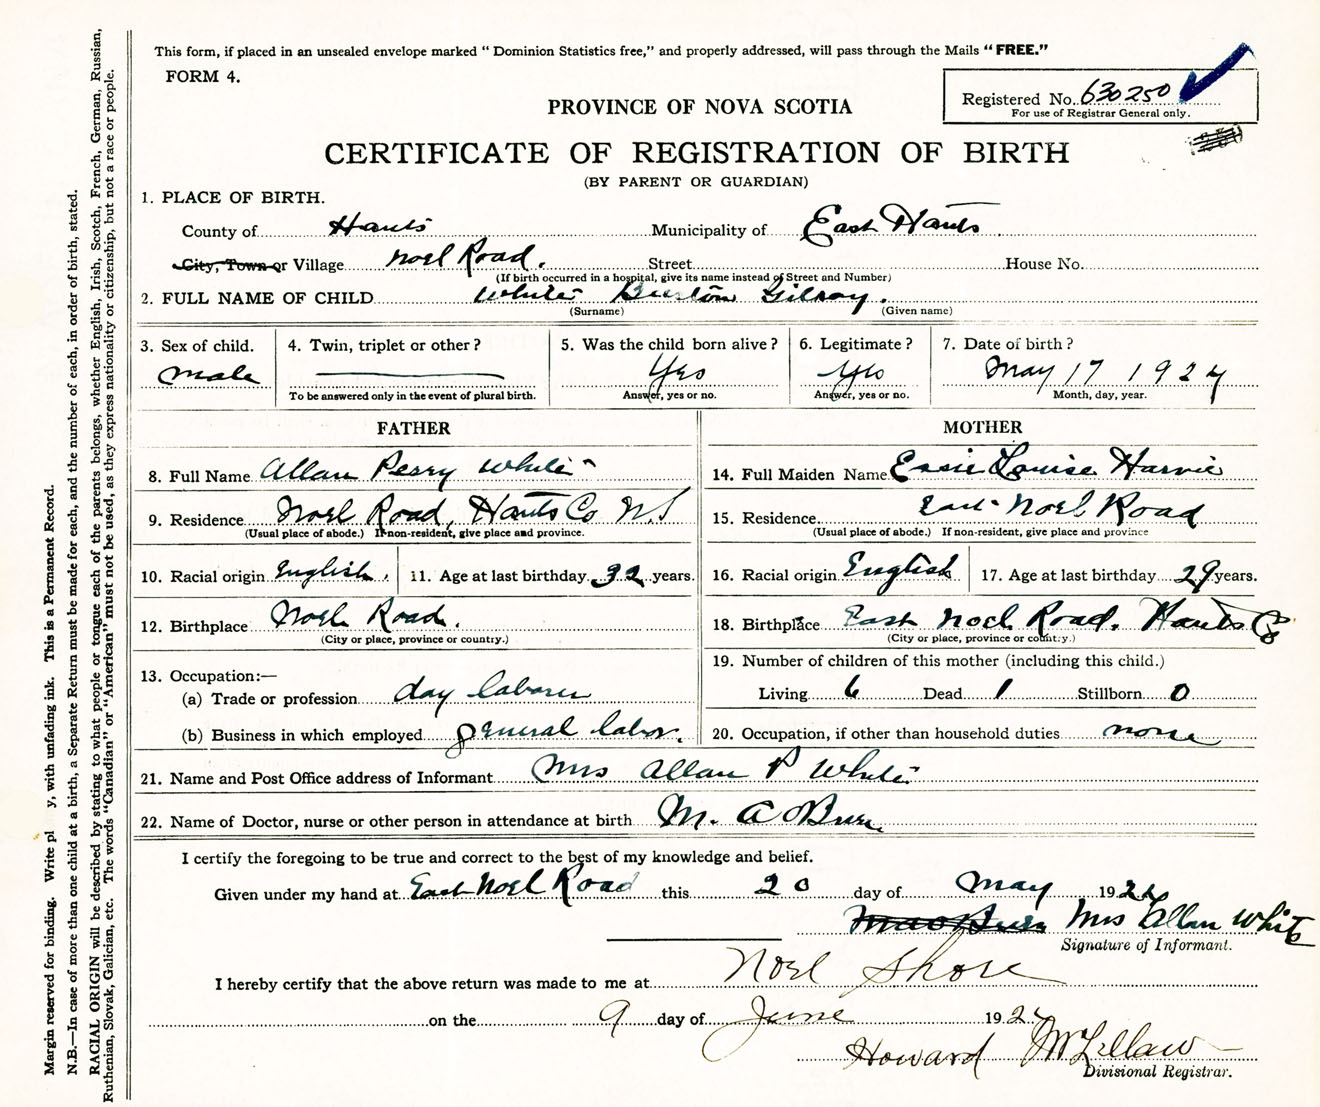 This form, if placed in an unsealed envelope marked “ Dominion Statistics free,” and properly addressed, will pass through the Mails “ FREE.”
FORM 4.
Registered No. 630250
For use of Registrar General only.
PROVINCE OF NOVA SCOTIA
CERTIFICATE OF REGISTRATION OF BIRTH
(BY PARENT OR GUARDIAN)
1. PLACE OF BIRTH.
County of Hants Municipality of East Hants
City, Town or Village Noel Road. Street House No.
(If birth occurred in a hospital, give its name instead of Street and Number)
2. FULL NAME OF CHILD White Burton Gilray.
(Surname) (Given name)
3. Sex of child. 4. Twin, triplet or other? 5. Was the child born alive? 6. Legitimate? 7. Date of birth?
male Yes Yes May 17 1924
To be answered only in the event of plural birth. Answer, yes or no. Answer, yes or no. Month, day, year.
FATHER MOTHER
8. Full Name Allan Perry White 14. Full Maiden Name Essie Louise Harvie
9. Residence Noel Road, Hants Co N.S 15. Residence East Noel Road
(Usual place of abode.) If non-resident, give place and province. (Usual place of abode.) If non-resident, give place and province
10. Racial origin English. 11. Age at last birthday 32 years. 16. Racial origin English 17. Age at last birthday 29 years.
12. Birthplace Noel Road. 18. Birthplace East Noel Road. Hants Co
(City or place, province or country.) (City or place, province or country.)
13. Occupation:— 19. Number of children of this mother (including this child.)
(a) Trade or profession day laborer Living 6 Dead 1 Stillborn 0
(b) Business in which employed general labor. 20. Occupation, if other than household duties none
21. Name and Post Office address of Informant Mrs Allan P White
22. Name of Doctor, nurse or other person in attendance at birth M. A
I certify the foregoing to be true and correct to the best of my knowledge and belief.
Given under my hand at East Noel Road this 20 day of May 192
Mrs Allan White
Signature of Informant.
I hereby certify that the above return was made to me at Noel Shore
on the 9 day of June 192
Howard McLellan
Divisional Registrar.
Margin reserved for binding. Write pl y, with unfading ink. This is a Permanent Record.
N.B.—In case of more than one child at a birth, a Separate Return must be made for each, and the number of each, in order of birth, stated.
RACIAL ORIGIN will be described by stating to what people or tongue each of the parents belongs, whether English, Irish, Scotch, French, German, Russian,
Ruthenian, Slovak, Galician, etc. The words “Canadian” or “American” must not be used, as they express nationality or citizenship, but not a race or people.